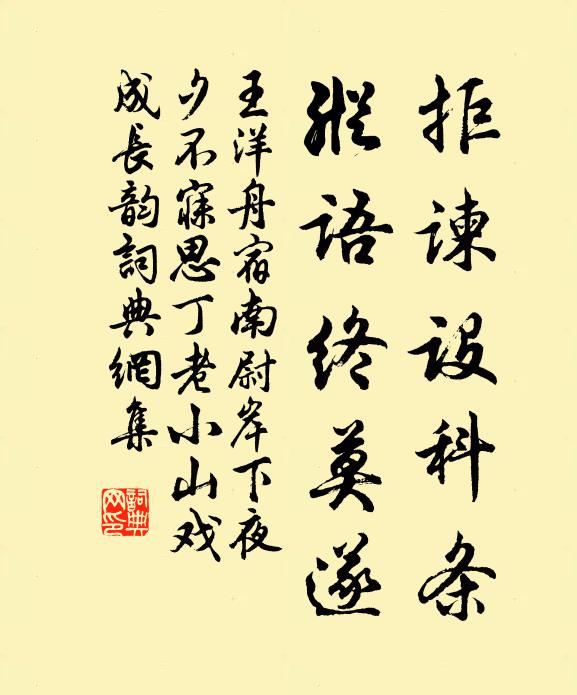 拒諫設科条
縱語终莫遂
王洋舟宿南尉岸下夜
夕不寐思丁老小山戏
成長韵詞典網集
詞典网印